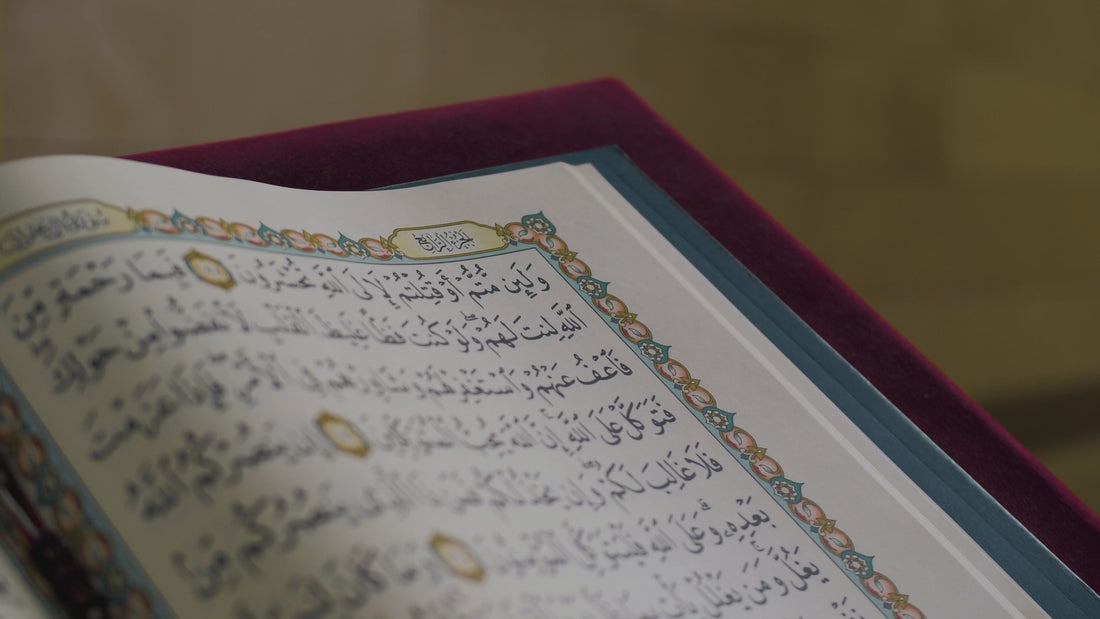 سورة آل عمران
الجزء الرابع
وَلَئِن مُّتُّمْ أَوْ قُتِلْتُمْ لَإِلَى ٱللَّهِ تُحْشَرُونَ فَبِمَا رَحْمَةٍ مِّنَ
ٱللَّهِ لِنتَ لَهُمْ ۖ وَلَوْ كُنتَ فَظًّا غَلِيظَ ٱلْقَلْبِ لَٱنفَضُّوا۟ مِنْ حَوْلِكَ ۖ
فَٱعْفُ عَنْهُمْ وَٱسْتَغْفِرْ لَهُمْ وَشَاوِرْهُمْ فِى ٱلْأَمْرِ ۖ فَإِذَا عَزَمْتَ
فَتَوَكَّلْ عَلَى ٱللَّهِ ۚ إِنَّ ٱللَّهَ يُحِبُّ ٱلْمُتَوَكِّلِينَ إِن يَنصُرْكُمُ ٱللَّهُ
فَلَا غَالِبَ لَكُمْ ۖ وَإِن يَخْذُلْكُمْ فَمَن ذَا ٱلَّذِى يَنصُرُكُم مِّنۢ
بَعْدِهِۦ ۗ وَعَلَى ٱللَّهِ فَلْيَتَوَكَّلِ ٱلْمُؤْمِنُونَ وَمَا كَانَ لِنَبِىٍّ
يَغُلَّ ۚ وَمَن يَغْلُلْ يَأْتِ